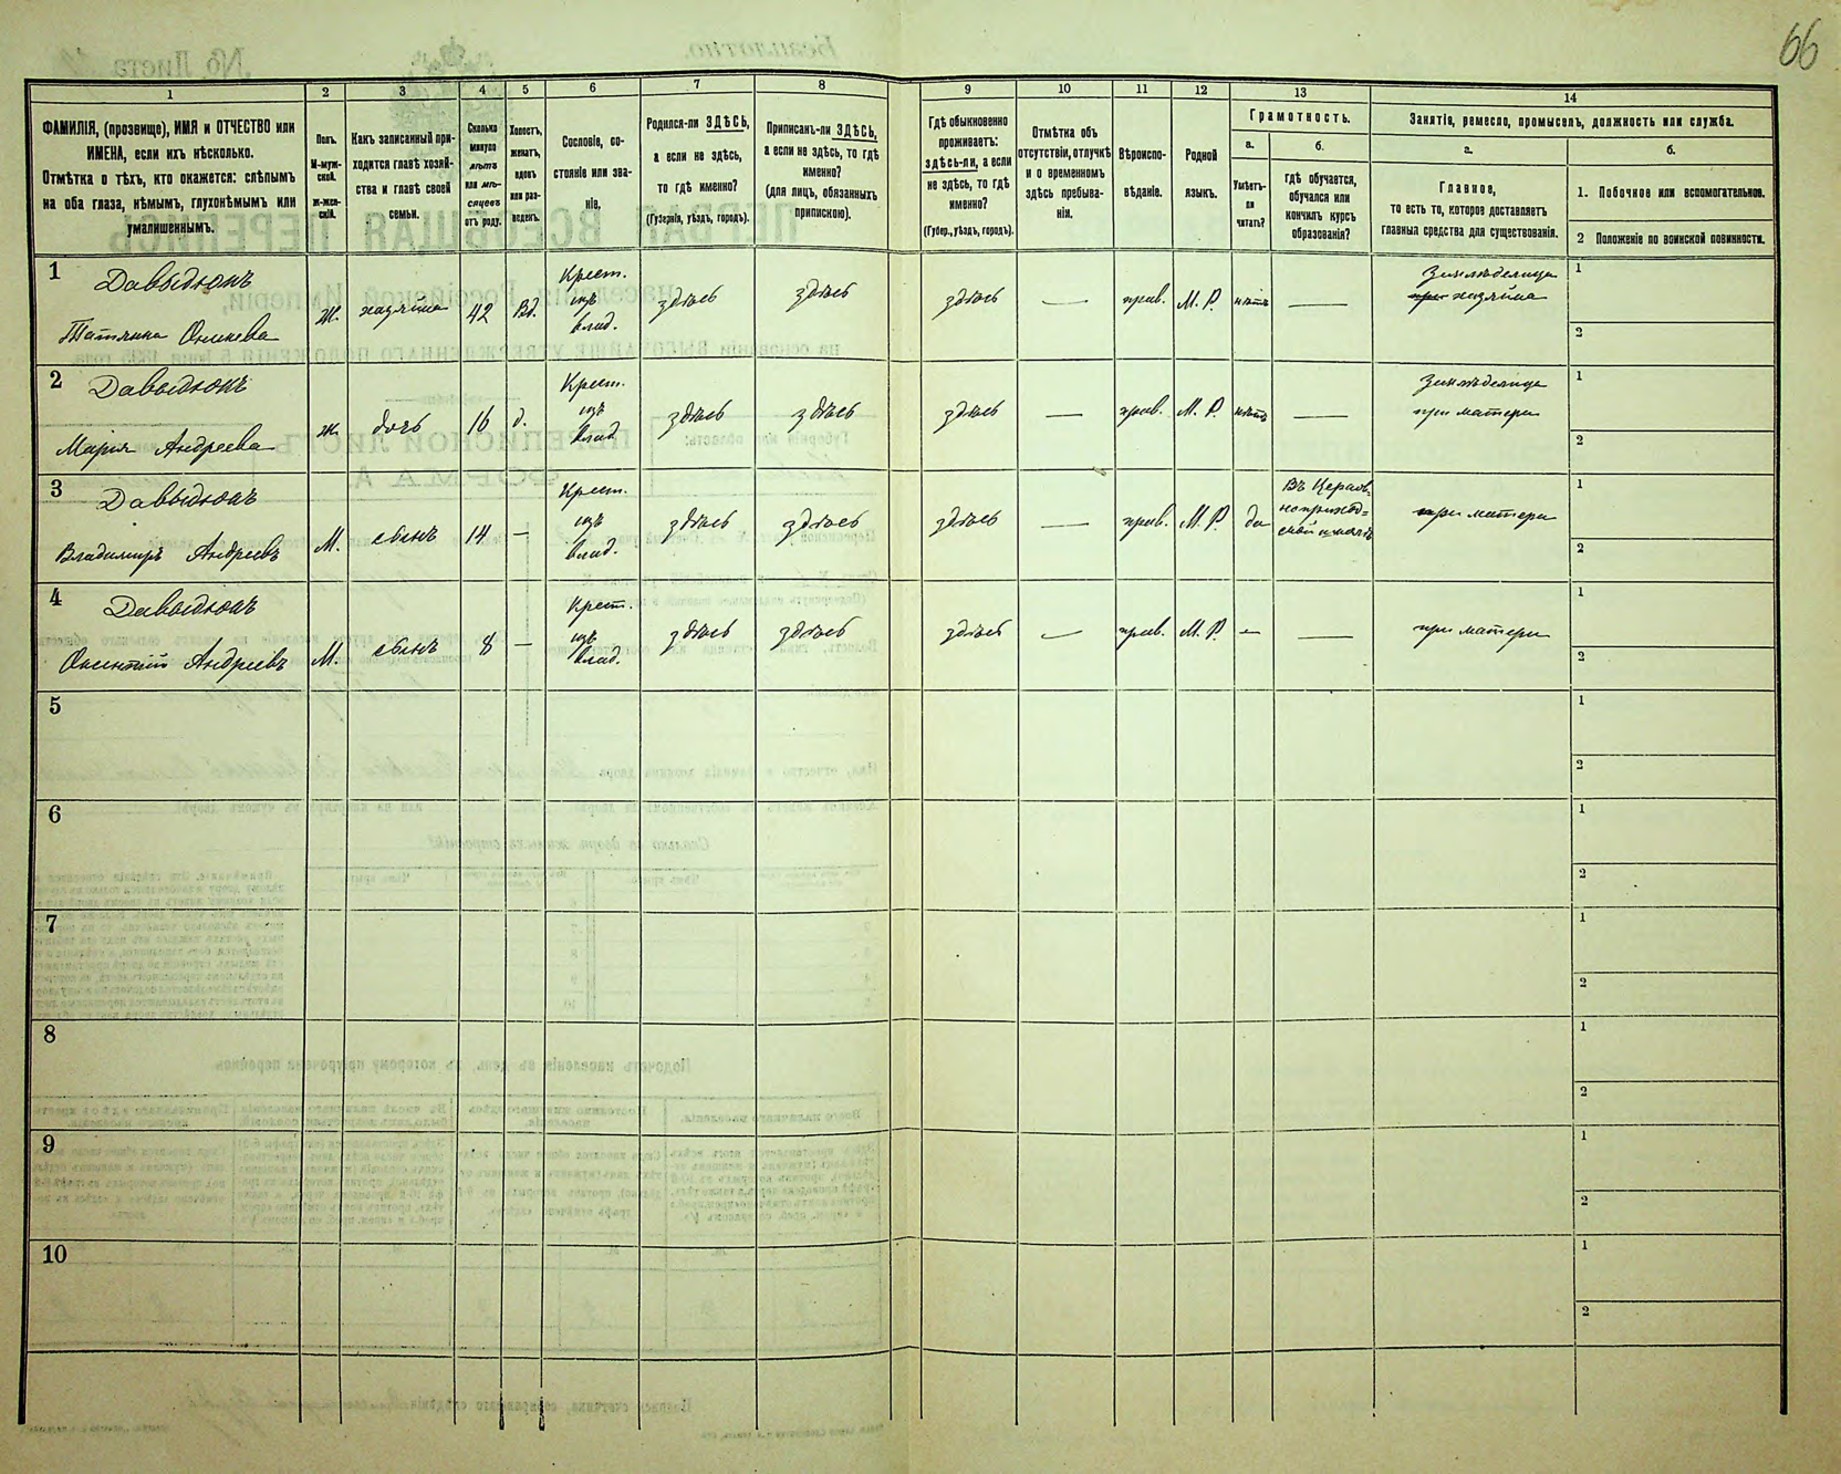 66
1
2
3
4
5
6
7
8
9
10
11
12
13
14
ФАМИЛІЯ, (прозвище), ИМЯ и ОТЧЕСТВО или
ИМЕНА, если ихъ нѣсколько.
Отмѣтка о тѣхъ, кто окажется: слѣпымъ
на оба глаза, нѣмымъ, глухонѣмымъ или
умалишеннымъ.
Полъ.
М-муж-
ской.
ж-жен-
скій.
Какъ записанный при-
ходится главѣ хозяй-
ства и главѣ своей
семьи.
Сколько
минуло
лѣтъ
или мѣ-
сяцевъ
отъ роду.
Холостъ,
женатъ,
вдовъ
или раз-
веденъ.
Сословіе, со-
стояніе или зва-
ніе.
Родился-ли ЗДѢСЬ,
а если не здѣсь,
то гдѣ именно?
(Губернія, уѣздъ, городъ).
Приписанъ-ли ЗДѢСЬ,
а если не здѣсь, то гдѣ
именно?
(для лицъ, обязанныхъ
припискою).
Гдѣ обыкновенно
проживаетъ:
здѣсь-ли, а если
не здѣсь, то гдѣ
именно?
(Губер., уѣздъ, городъ).
Отмѣтка объ
отсутствіи, отлучкѣ
и о временномъ
здѣсь пребыва-
ніи.
Вѣроиспо-
вѣданіе.
Родной
языкъ.
Грамотность.
а.
Умѣетъ-
ли
читать?
б.
гдѣ обучается,
обучался или
кончилъ курсъ
образованія?
Занятія, ремесло, промыселъ, должность или служба.
а.
Главное,
то есть то, которое доставляетъ
главныя средства для существованія.
б.
1. Побочное или вспомогательное.
2 Положеніе по воинской повинности.
1
Давыдюкъ
Татьяна Оникева
Ж.
хозяйка
42
Вд.
Крест.
изъ
влад.
здѣсь
здѣсь
здѣсь
—
прав.
М. Р.
нѣтъ
—
Земледелица
хозяйка
1
2
2
Давыдюкъ
Марія Андреева
ж.
дочь
16
д.
Крест.
изъ
влад
здѣсь
здѣсь
здѣсь
—
прав.
М. Р.
нѣтъ
—
Земледелица
при матери
1
2
3
Давыдюкъ
Владимиръ Андреевъ
М.
сынъ
14
—
Крест.
изъ
влад.
здѣсь
здѣсь
здѣсь
—
прав.
М. Р.
да
Въ Церков-
ноприход=
ской школѣ
при матери
1
2
4
Давыдюкъ
Оксентій Андреевъ
М.
сынъ
8
—
Крест.
изъ
влад.
здѣсь
здѣсь
здѣсь
—
прав.
М. Р.
—
—
при матери
1
2
5
1
2
6
1
2
7
1
2
8
1
2
9
1
2
10
1
2